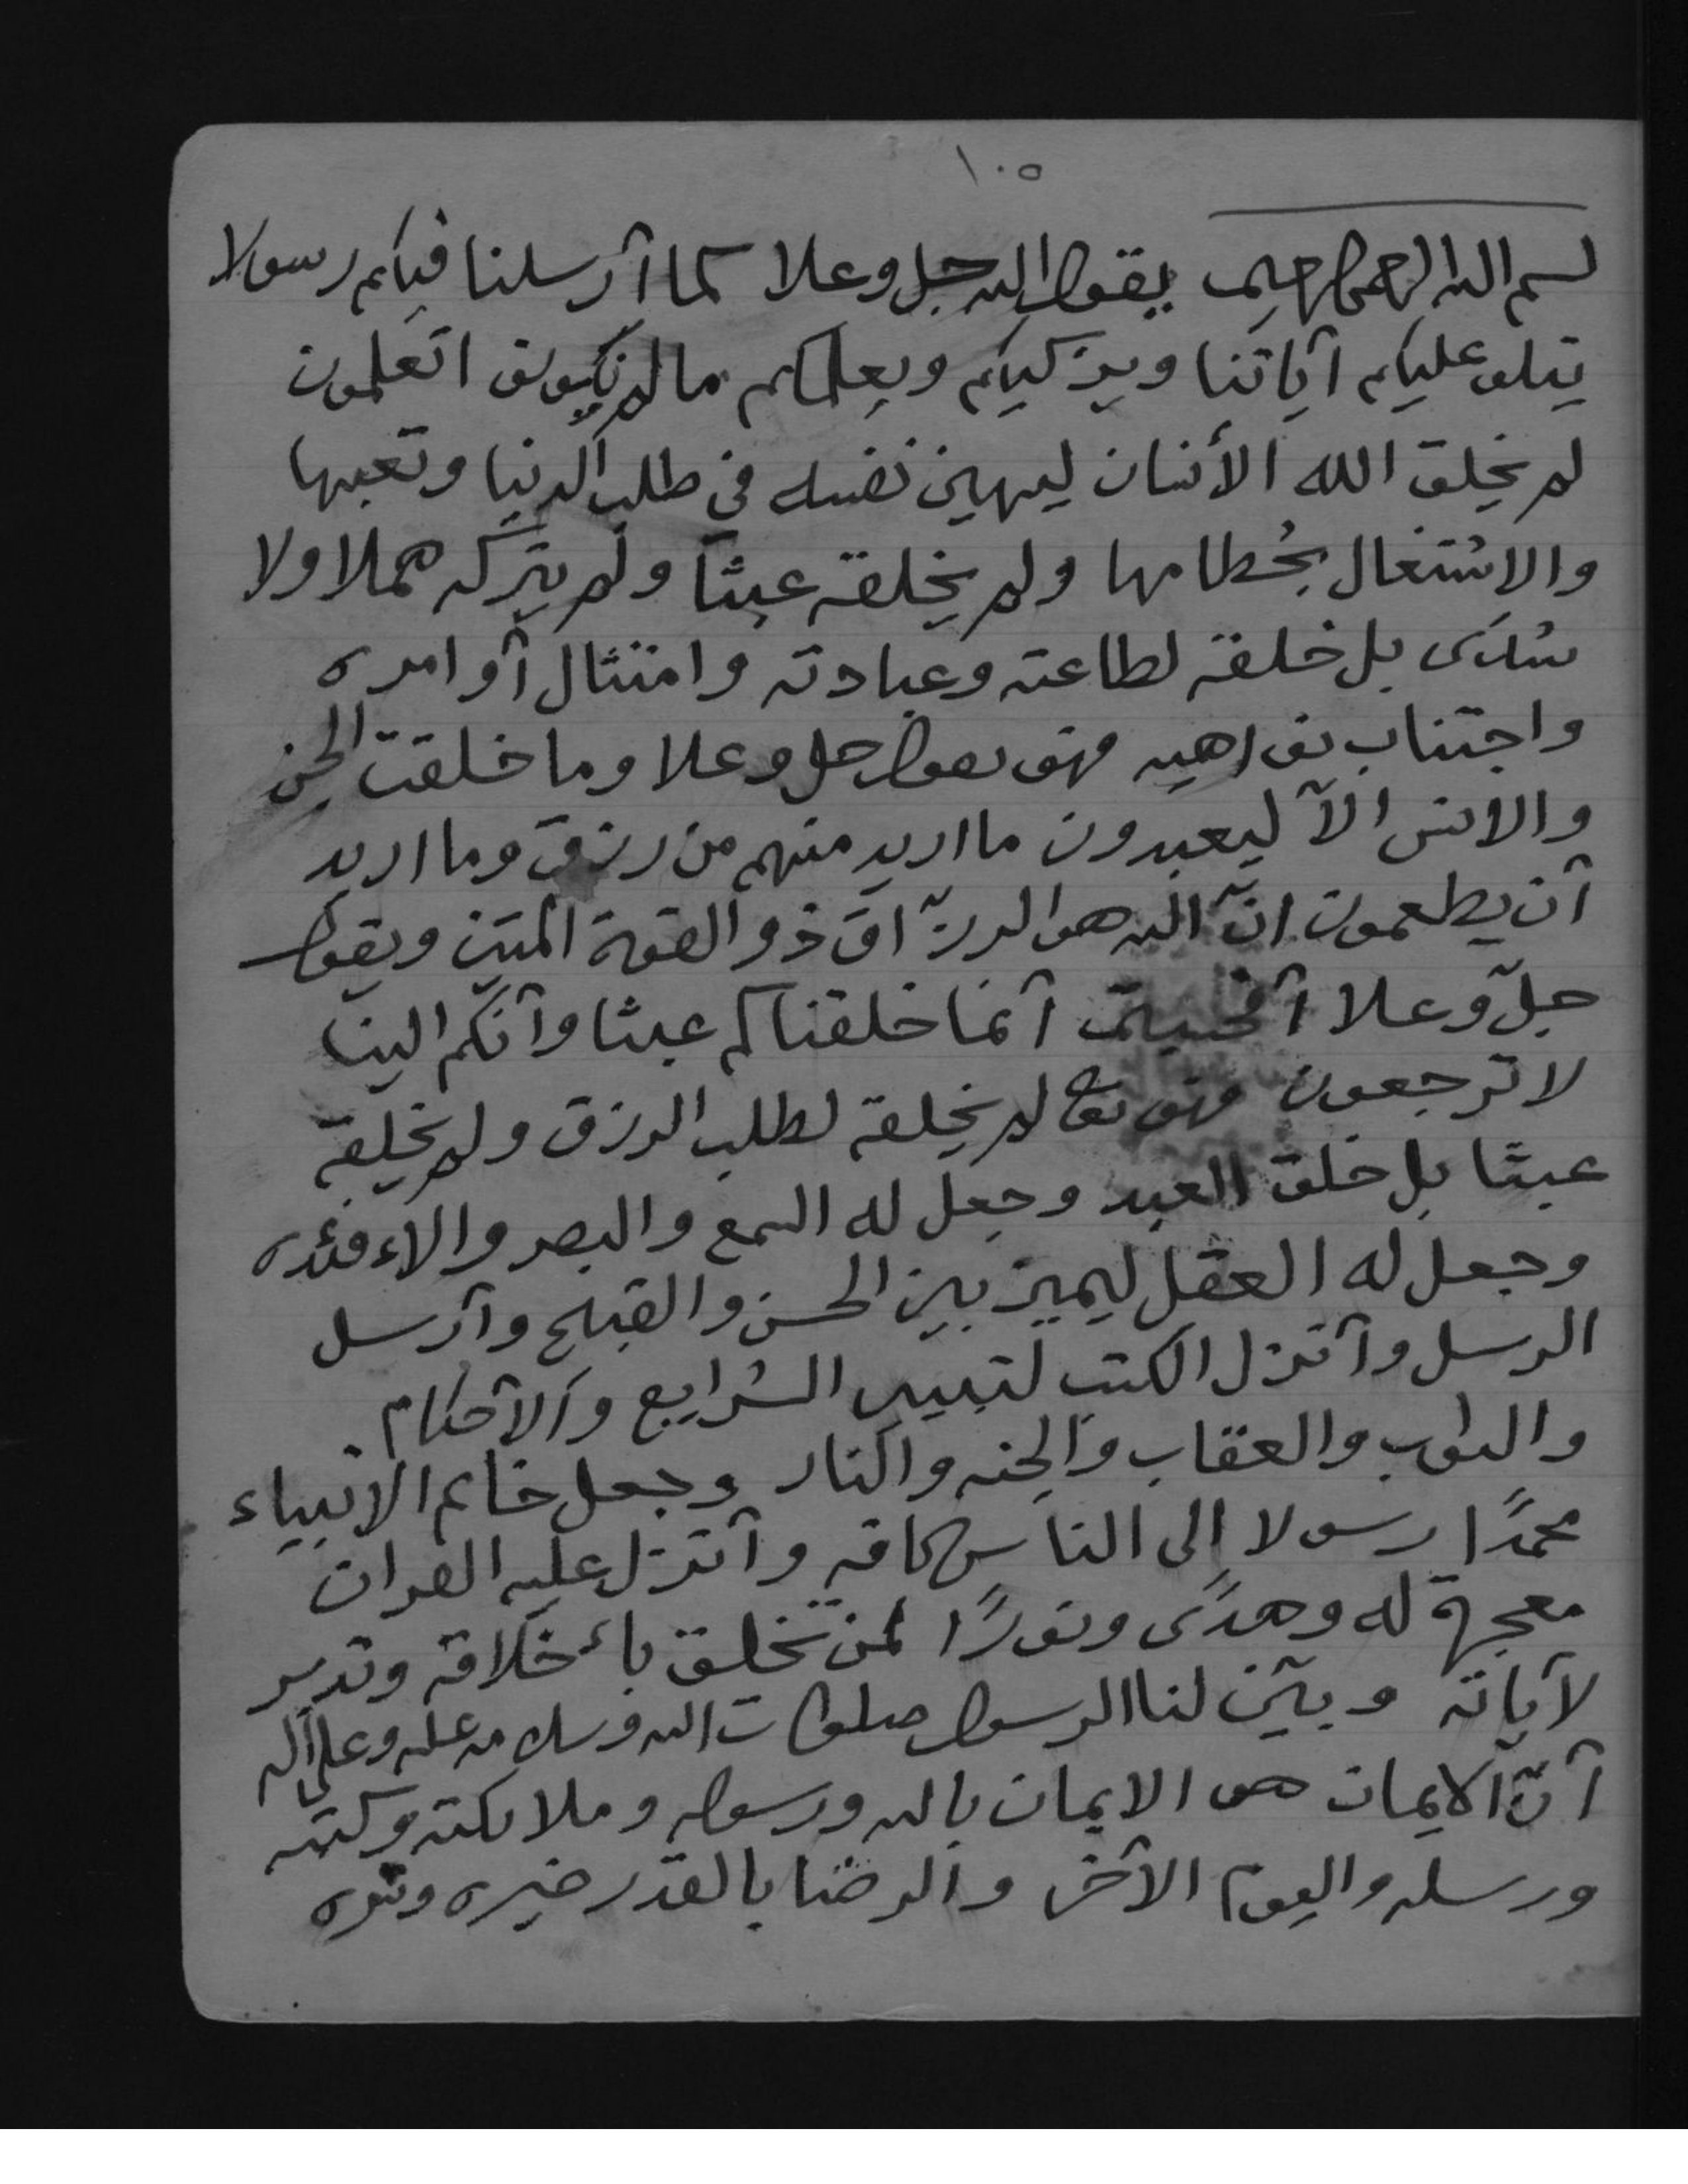 ١٠٥
بسم الله الرحمن الرحيم يقول الله جل وعلا كما أرسلنا فيكم رسولا
يتلو عليكم آياتنا ويزكيكم ويعلمكم ما لم تكونوا تعلمون
لم يخلق الله الأنسان ليهين نفسه في طلب الدنيا وتعبها
والاشتغال بحُطامها ولم يخلقه عبثا ولم يتركه هملا ولا
سُدَى بل خلقه لطاعته وعبادته وامتثال أوامره
واجتناب نواهيه فهو يقول جل وعلا وما خلقت الجن
والانس الاّ ليعبدون ما اريد منهم من رزق وما اريد
أن يطعمون انّ الله هو الرزّاق ذو القوة المتين ويقول
جلّ وعلا أفحسبتم أنما خلقناكم عبثا وأنكم الينا
لا ترجعون فهو تعالى لم يخلقه لطلب الرزق ولم يخلقه
عبثا بل خلق العبد وجعل له السمع والبصر والاءفئده
وجعل له العقل ليميز بين الحسن والقبيح وأرسل
الرسل وأنزل الكتب لتبيين الشرايع والأحكام
والثواب والعقاب والجنه والنار وجعل خاتم الانبياء
محمدًا رسولا إلى الناس كافه وأنزل عليه القران
معجزة له وهدًى ونورًا لمن تخلق باءخلاقه وتدبر
لآياته وبيّن لنا الرسول صلوات الله وسلامه عليه وعلى آله
أنّ الايمان هو الايمان بالله ورسوله وملائكته وكتبه
ورسله واليوم الآخر والرضا بالقدر خيره وشره